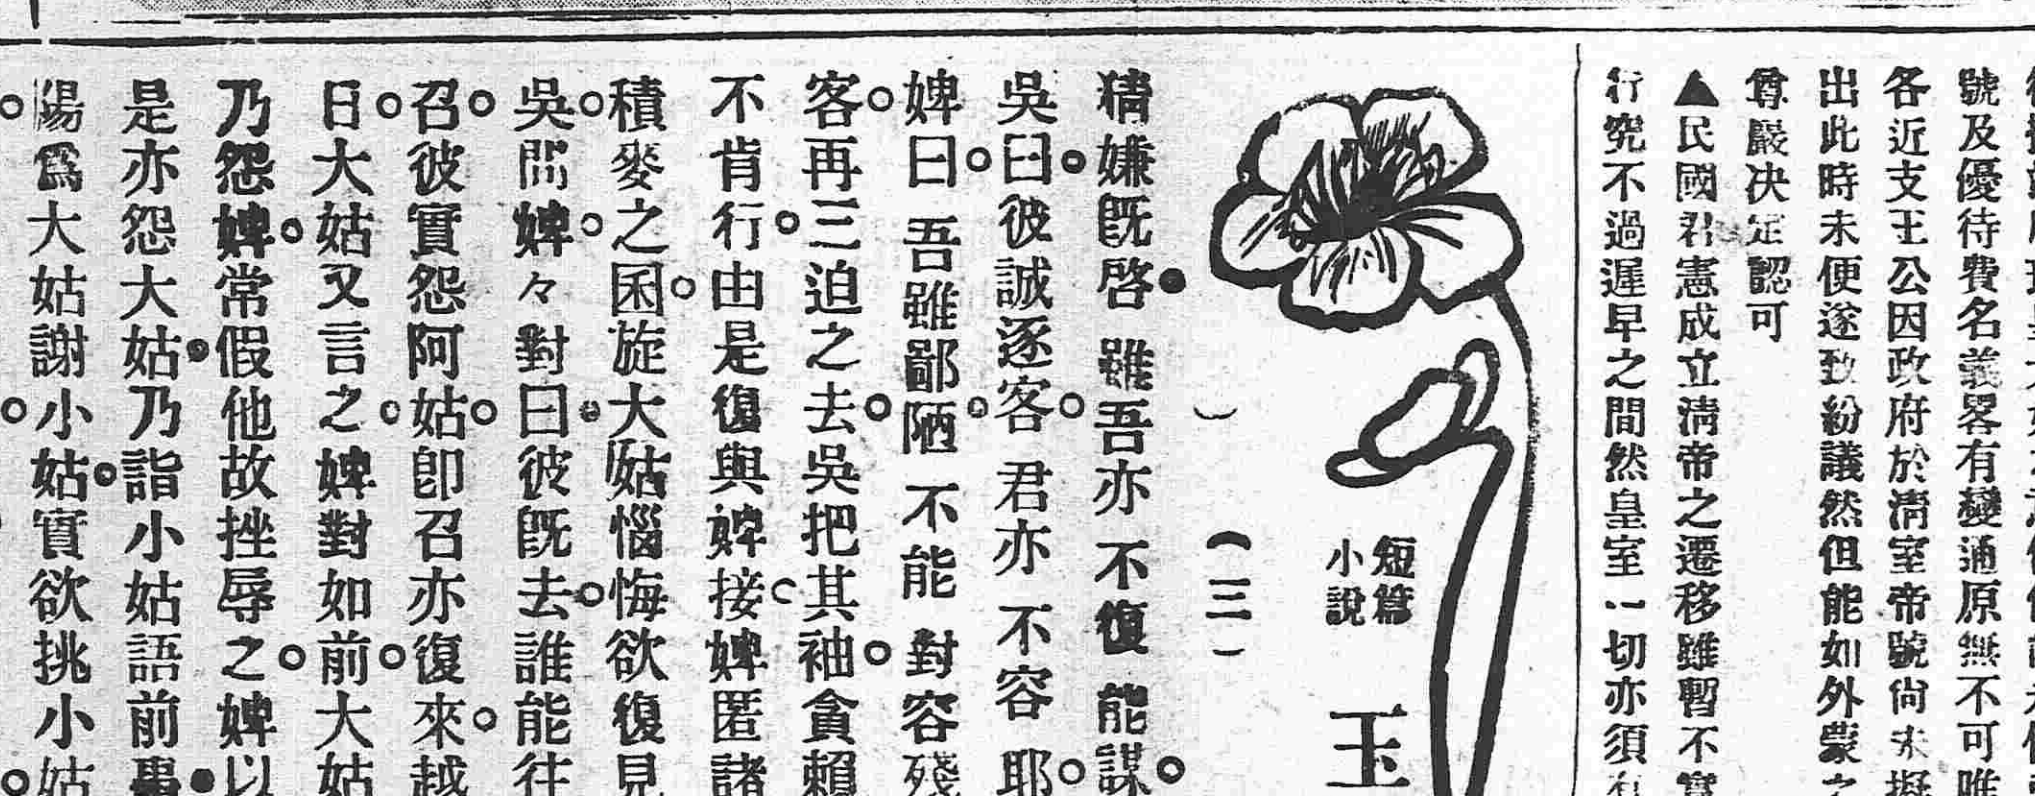 號及優待費名義畧有變通原無不可唯
各近支王公因政府於淸室帝號尙未擬
出此時未便遂致紛議然但能如外蒙之
尊嚴决定認可
▲民國君憲成立淸帝之遷移雖暫不實
行究不過遲早之間然皇室一切亦須有
短篇
小說
玉
(三)
猜嫌旣啓●雖吾亦不復能謀○
吳曰●彼誠逐客○君亦不容耶○
婢曰○吾雖鄙陋○不能對容殘
客○再三迫之去○吳把其袖○貪賴
不肯行○由是復與婢接○婢匿諸
積麥之囷○旋大姑惱悔欲復見
吳○問婢○々對曰●彼旣去○誰能往
召○彼實怨阿姑○卽召亦復來○越
日○大姑又言之○婢對如前○大姑
乃怨婢○常假他故挫辱之○婢以
是亦怨大姑●乃詣小姑語前事●
陽爲大姑謝小姑○實欲挑小姑